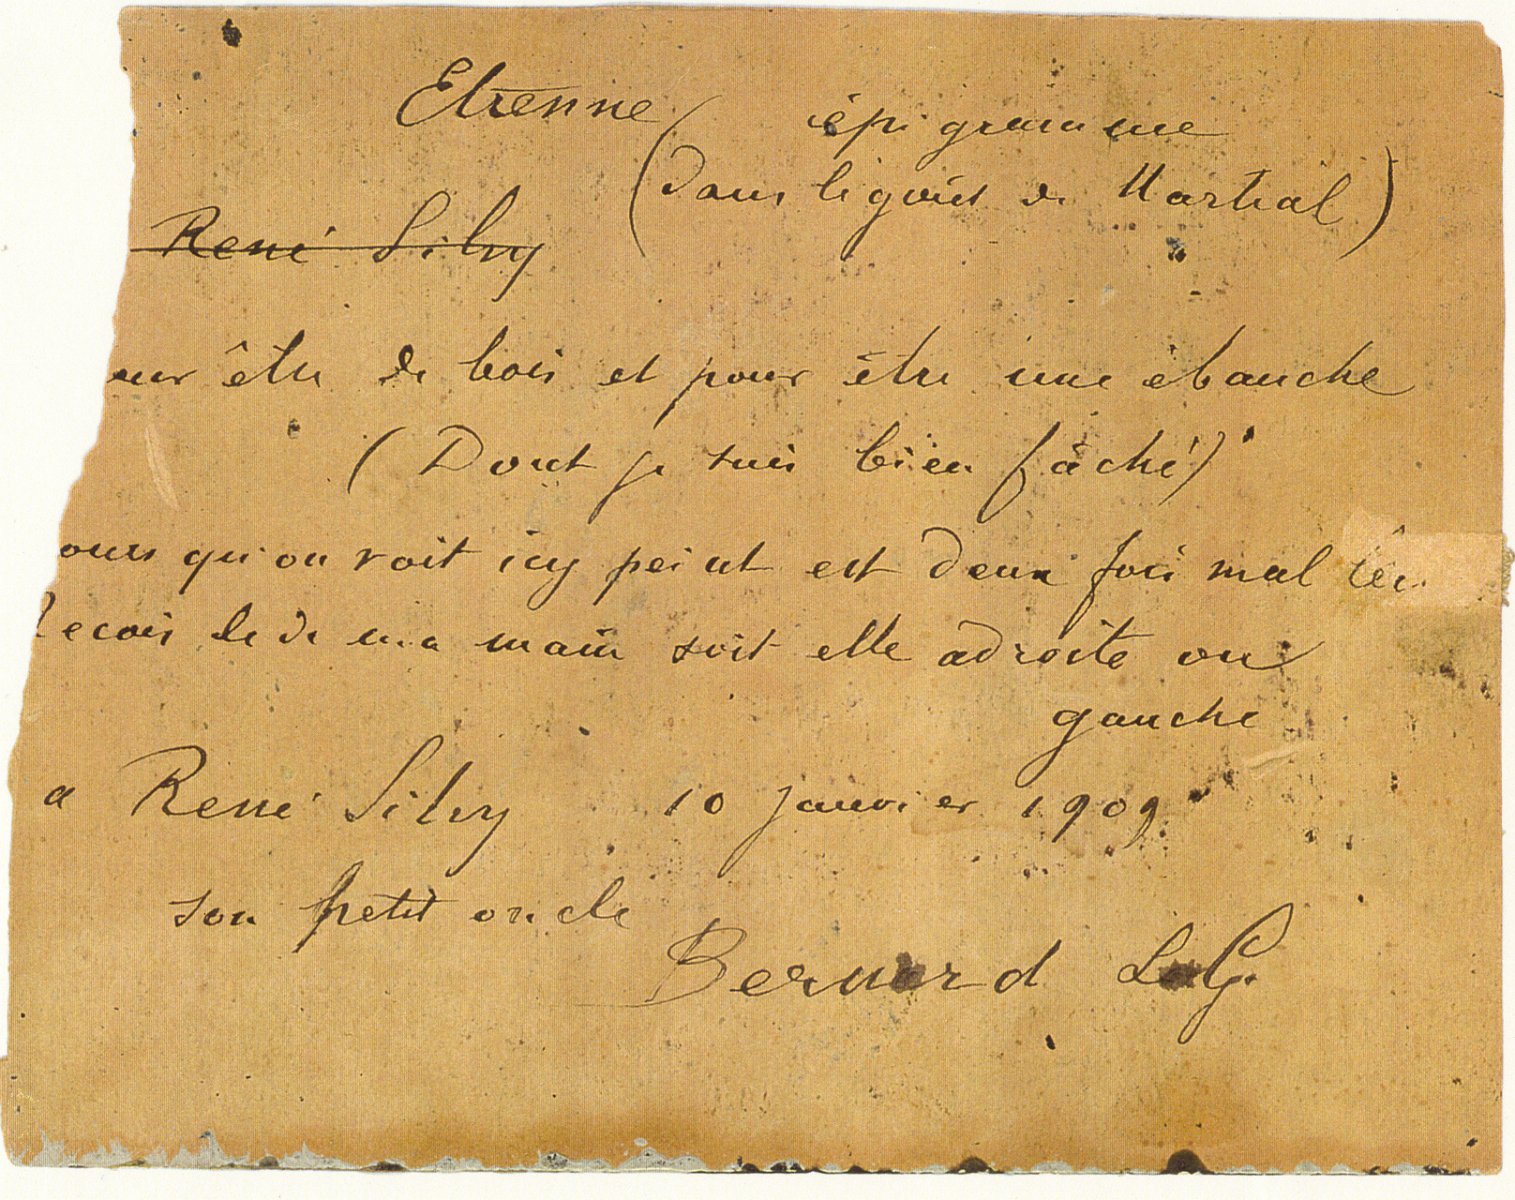 Etrenne
épigramme
(dans le goût de Martial)
René Silvy
ur être de bois et pour être une ebauche
(Dont je suis bien fâché)
ours qu'on voit icy peint est deux fois mal
Recois le de ma main soit elle adroite ou
gauche
a René Silvy 10 janvier 1909
son petit oncle
Bernard